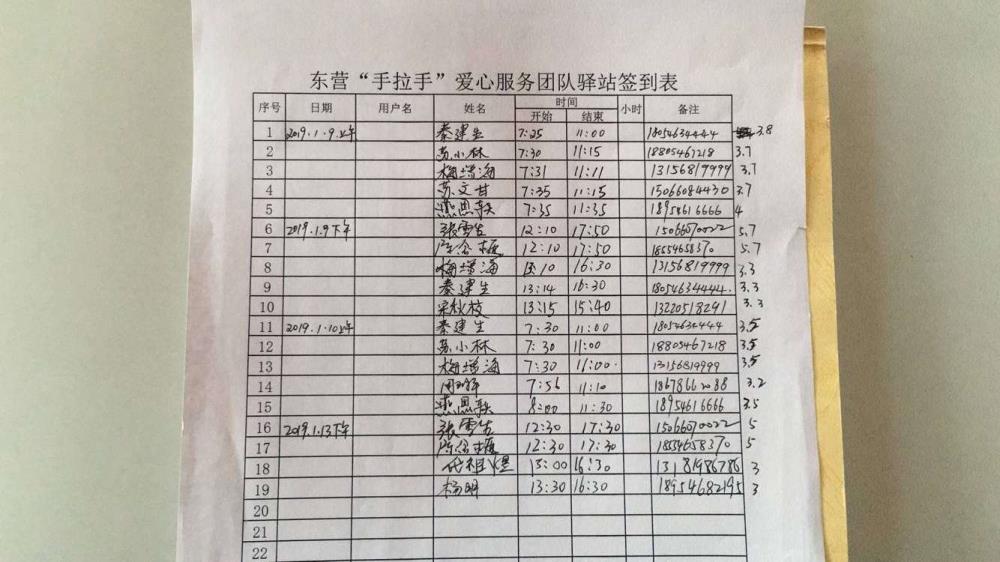 东营“手拉手”爱心服务团队驿站签到表
序号 日期 用户名 姓名 时间 小时 备注
开始 结束
1 2019.1.9上午 秦建生 7:25 11:00 18054634444 3.8
2 苏小林 7:30 11:15 18805467218 3.7
3 梅增海 7:31 11:11 13156819999 3.7
4 苏文甘 7:35 11:15 15066084430 3.7
5 7:35 11:35 18954616666 4
6 2019.1.9下午 张雪生 12:10 17:50 15066070022 5.7
7 12:10 17:50 18554658370 5.7
8 梅增海 13:10 16:30 13156819999 3.3
9 秦建生 13:14 16:30 18054634444 3.3
10 宋秋枝 13:15 15:40 13220518291 3.3
11 2019.1.10上午 秦建生 7:30 11:00 18054634444 3.5
12 苏小林 7:30 11:00 18805467218 3.5
13 梅增海 7:30 11:00 13156819999 3.5
14 7:56 11:10 18678662088 3.2
15 8:00 11:30 18954616666 3.5
16 2019.1.13下午 张雪生 12:30 17:30 15066070022 5
17 12:30 17:30 18554658370 5
18 代祖煜 13:00 16:30 13181986786 3
19 杨明 13:30 16:30 18954682195 3
20
21
22